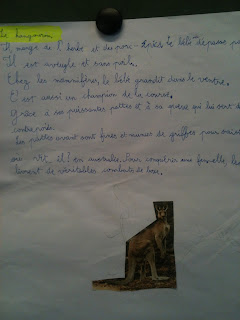 Le kangourou
Il mange de l'herbe et des
Il est aveugle et sans poils.
Chez les mammifères, le bébé grandit dans le ventre.
C'est aussi un champion de la course.
Grâce à ses puissantes pattes et à sa queue qui lui sert de
contre poids.
Les pattes avant sont fines et munies de griffes pour
vit il? En australie. Pour conquérir une femelle, les
de véritables combats de boxe.